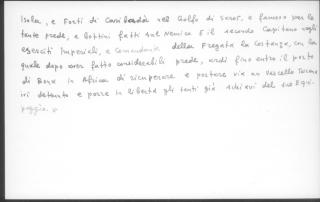 Isola, e Forti di Carislardà nel Golfo di Saros, e famoso per le
tante prede, e bottini fatti sul Nemico E il secondo Capitano negli
eserciti Imperiali, e Comandante della Fregata la Costanza, con la
quale dopo aver fatto considerabili prede, ardì fino entro il porto
di Bona in Africa di ricuperare e portare via un Vascello Toscano
ivi detenuto e porre in libertà gli tanti già schiavi del suo Equi
paggio.